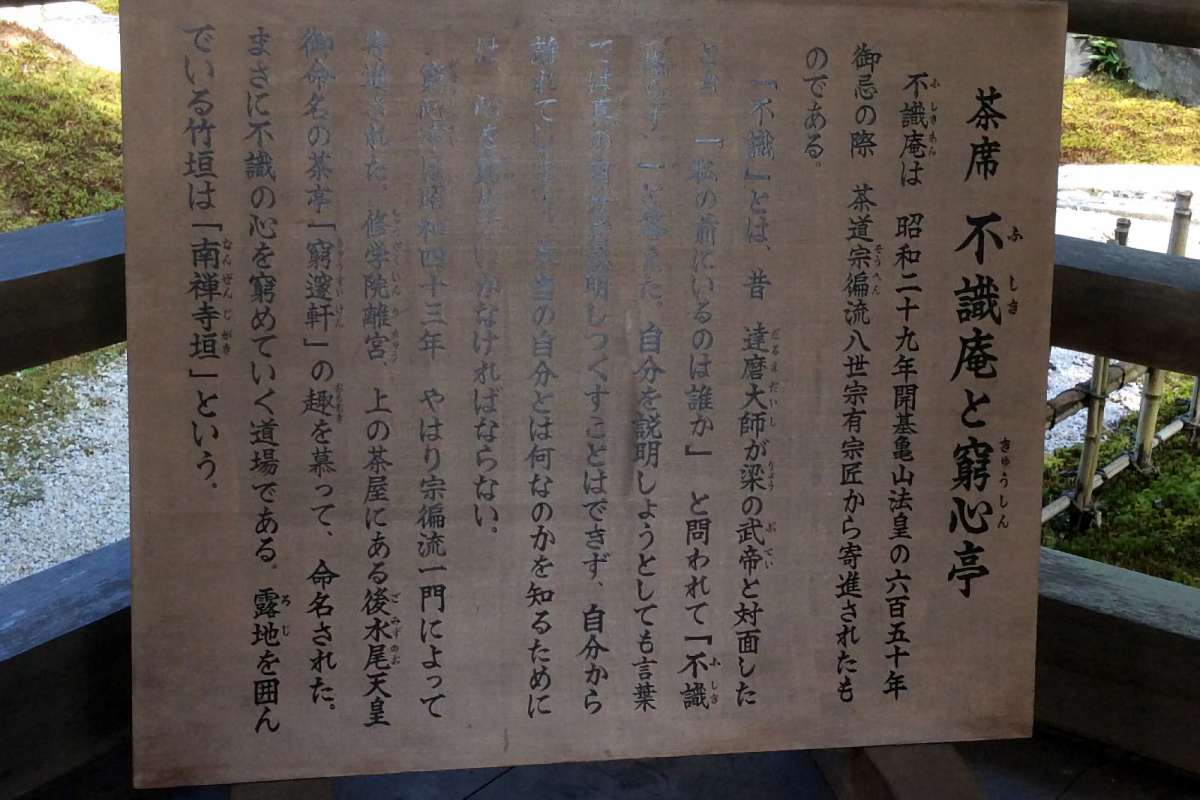 茶席 不識庵と窮心亭
不識庵は 昭和二十九年開基亀山法皇の六百五十年
御忌の際 茶道宗徧流八世宗有宗匠から寄進されたも
のである。
「不識」とは、昔 達磨大師が梁の武帝と対面した
とき 「私の前にいるのは誰か」 と問われて『不識
」と答えた。自分を説明しようとしても言葉
では真の自分を説明しつくすことはできず、自分から
離れてしまう。本当の自分とは何なのかを知るために
は 心を しなければならない。
窮心亭は昭和四十三年 やはり宗徧流一門によって
寄進された。修学院離宮 上の茶屋にある後水尾天皇
御命名の茶亭「窮邃軒」の趣を慕って、命名された。
まさに不識の心を窮めていく道場である。露地を囲ん
でいる竹垣は「南禅寺垣」という。